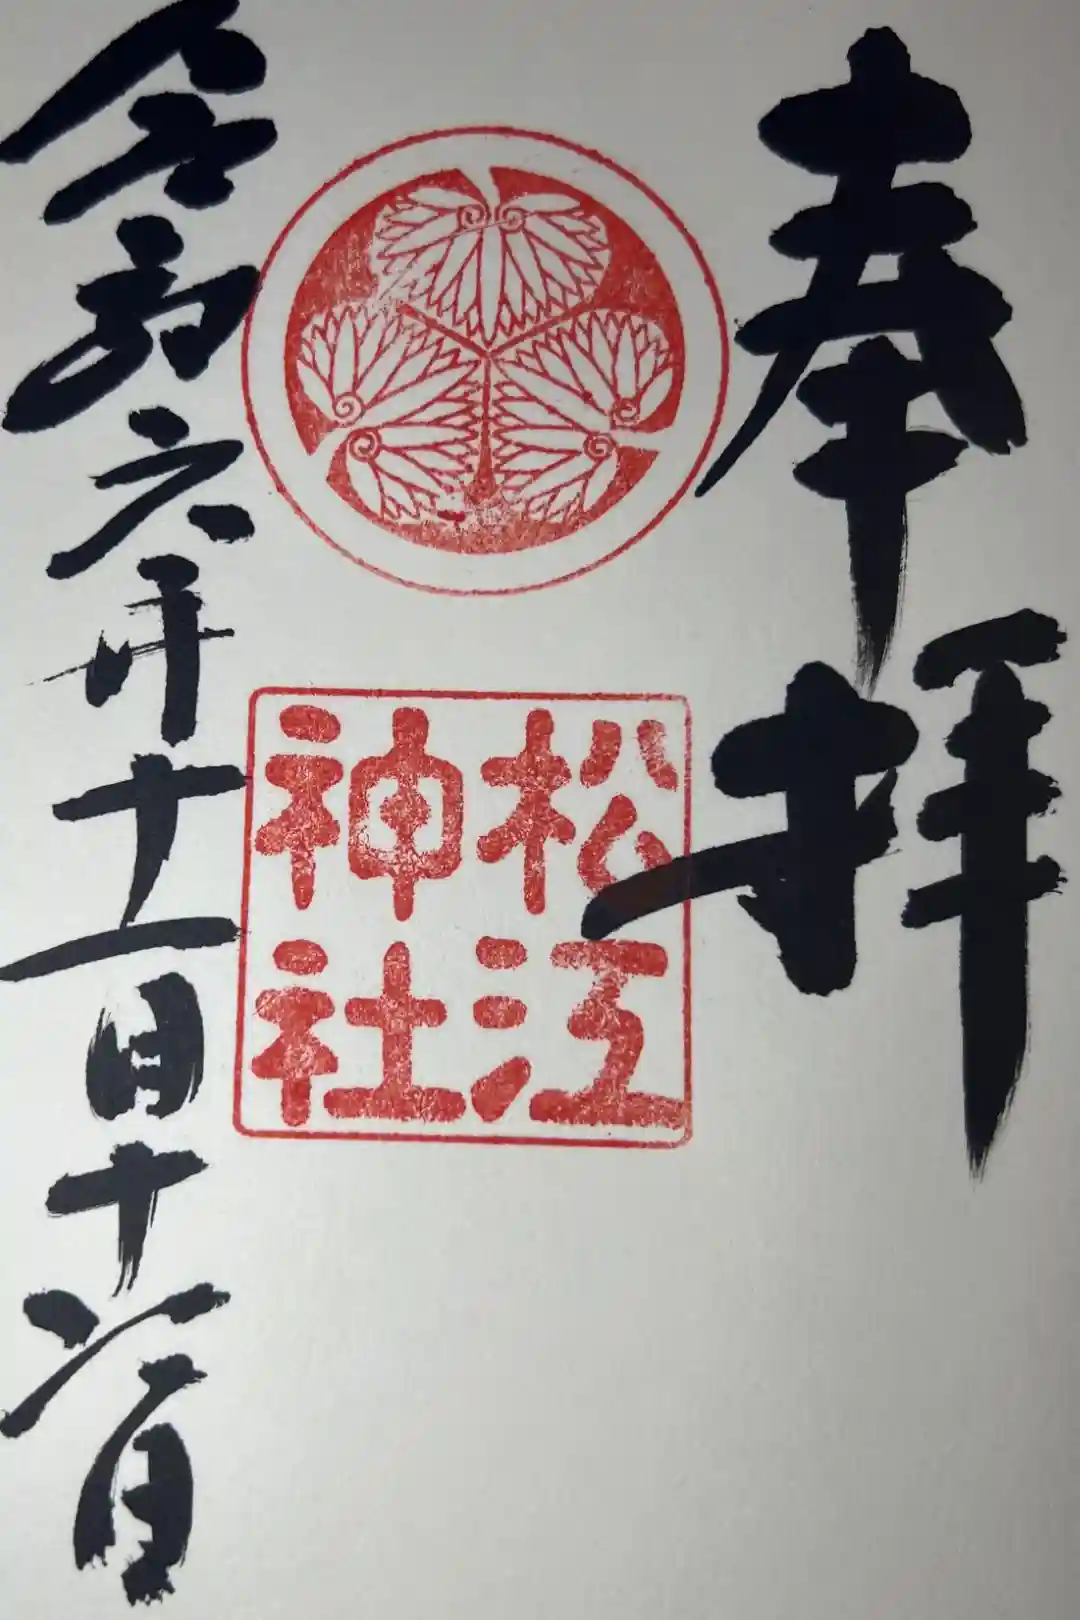 奉拝
松江
神社
令和六年十一月十日